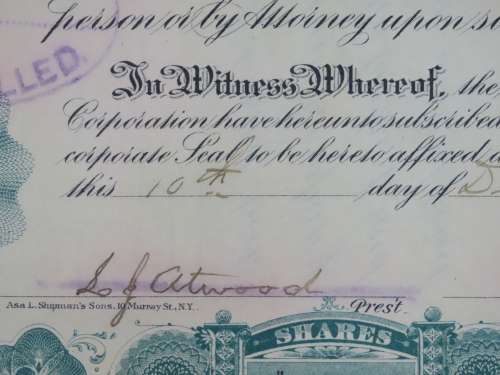 person or by Attorney upon
LLED
In Witness Whereof, the
Corporation have hereunto subscribed
corporate Seal to be hereto affixed
this 10th day of D
L J Atwood
Asa L. Shipman's Sons, 10 Murray St., N.Y.
Pres't.
SHARES